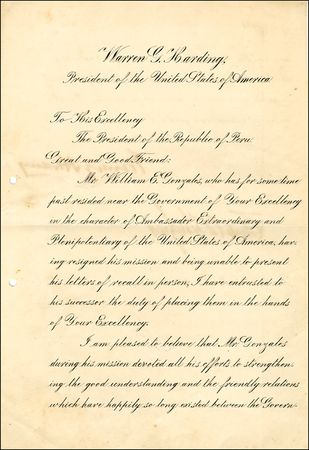 Warren G. Harding,
President of the United States of America
To His Excellency
The President of the Republic of Peru
Great and Good Friend:
Mr. William E. Gonzales, who has for some time
past resided near the Government of Your Excellency
in the character of Ambassador Extraordinary and
Plenipotentiary of the United States of America, hav-
ing resigned his mission and being unable to present
his letters of recall in person, I have entrusted to
his successor the duty of placing them in the hands
of Your Excellency.
I am pleased to believe that Mr. Gonzales
during his mission devoted all his efforts to strengthen-
ing the good understanding and the friendly relations
which have happily so long existed between the Govern-